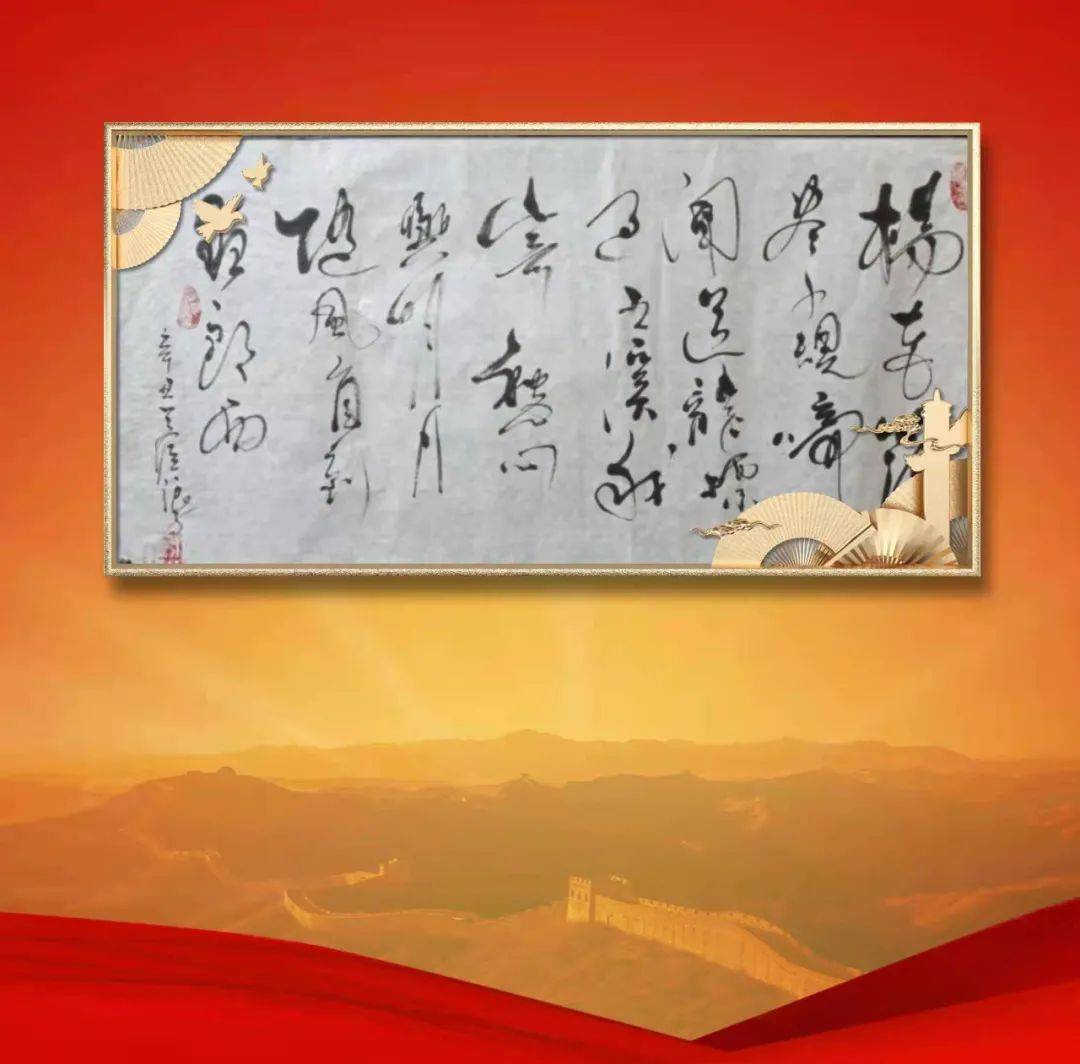 楊花落
尽子規啼
闻道龍标
过五溪我
寄愁心
與明月
随風直到
夜郎西
辛丑